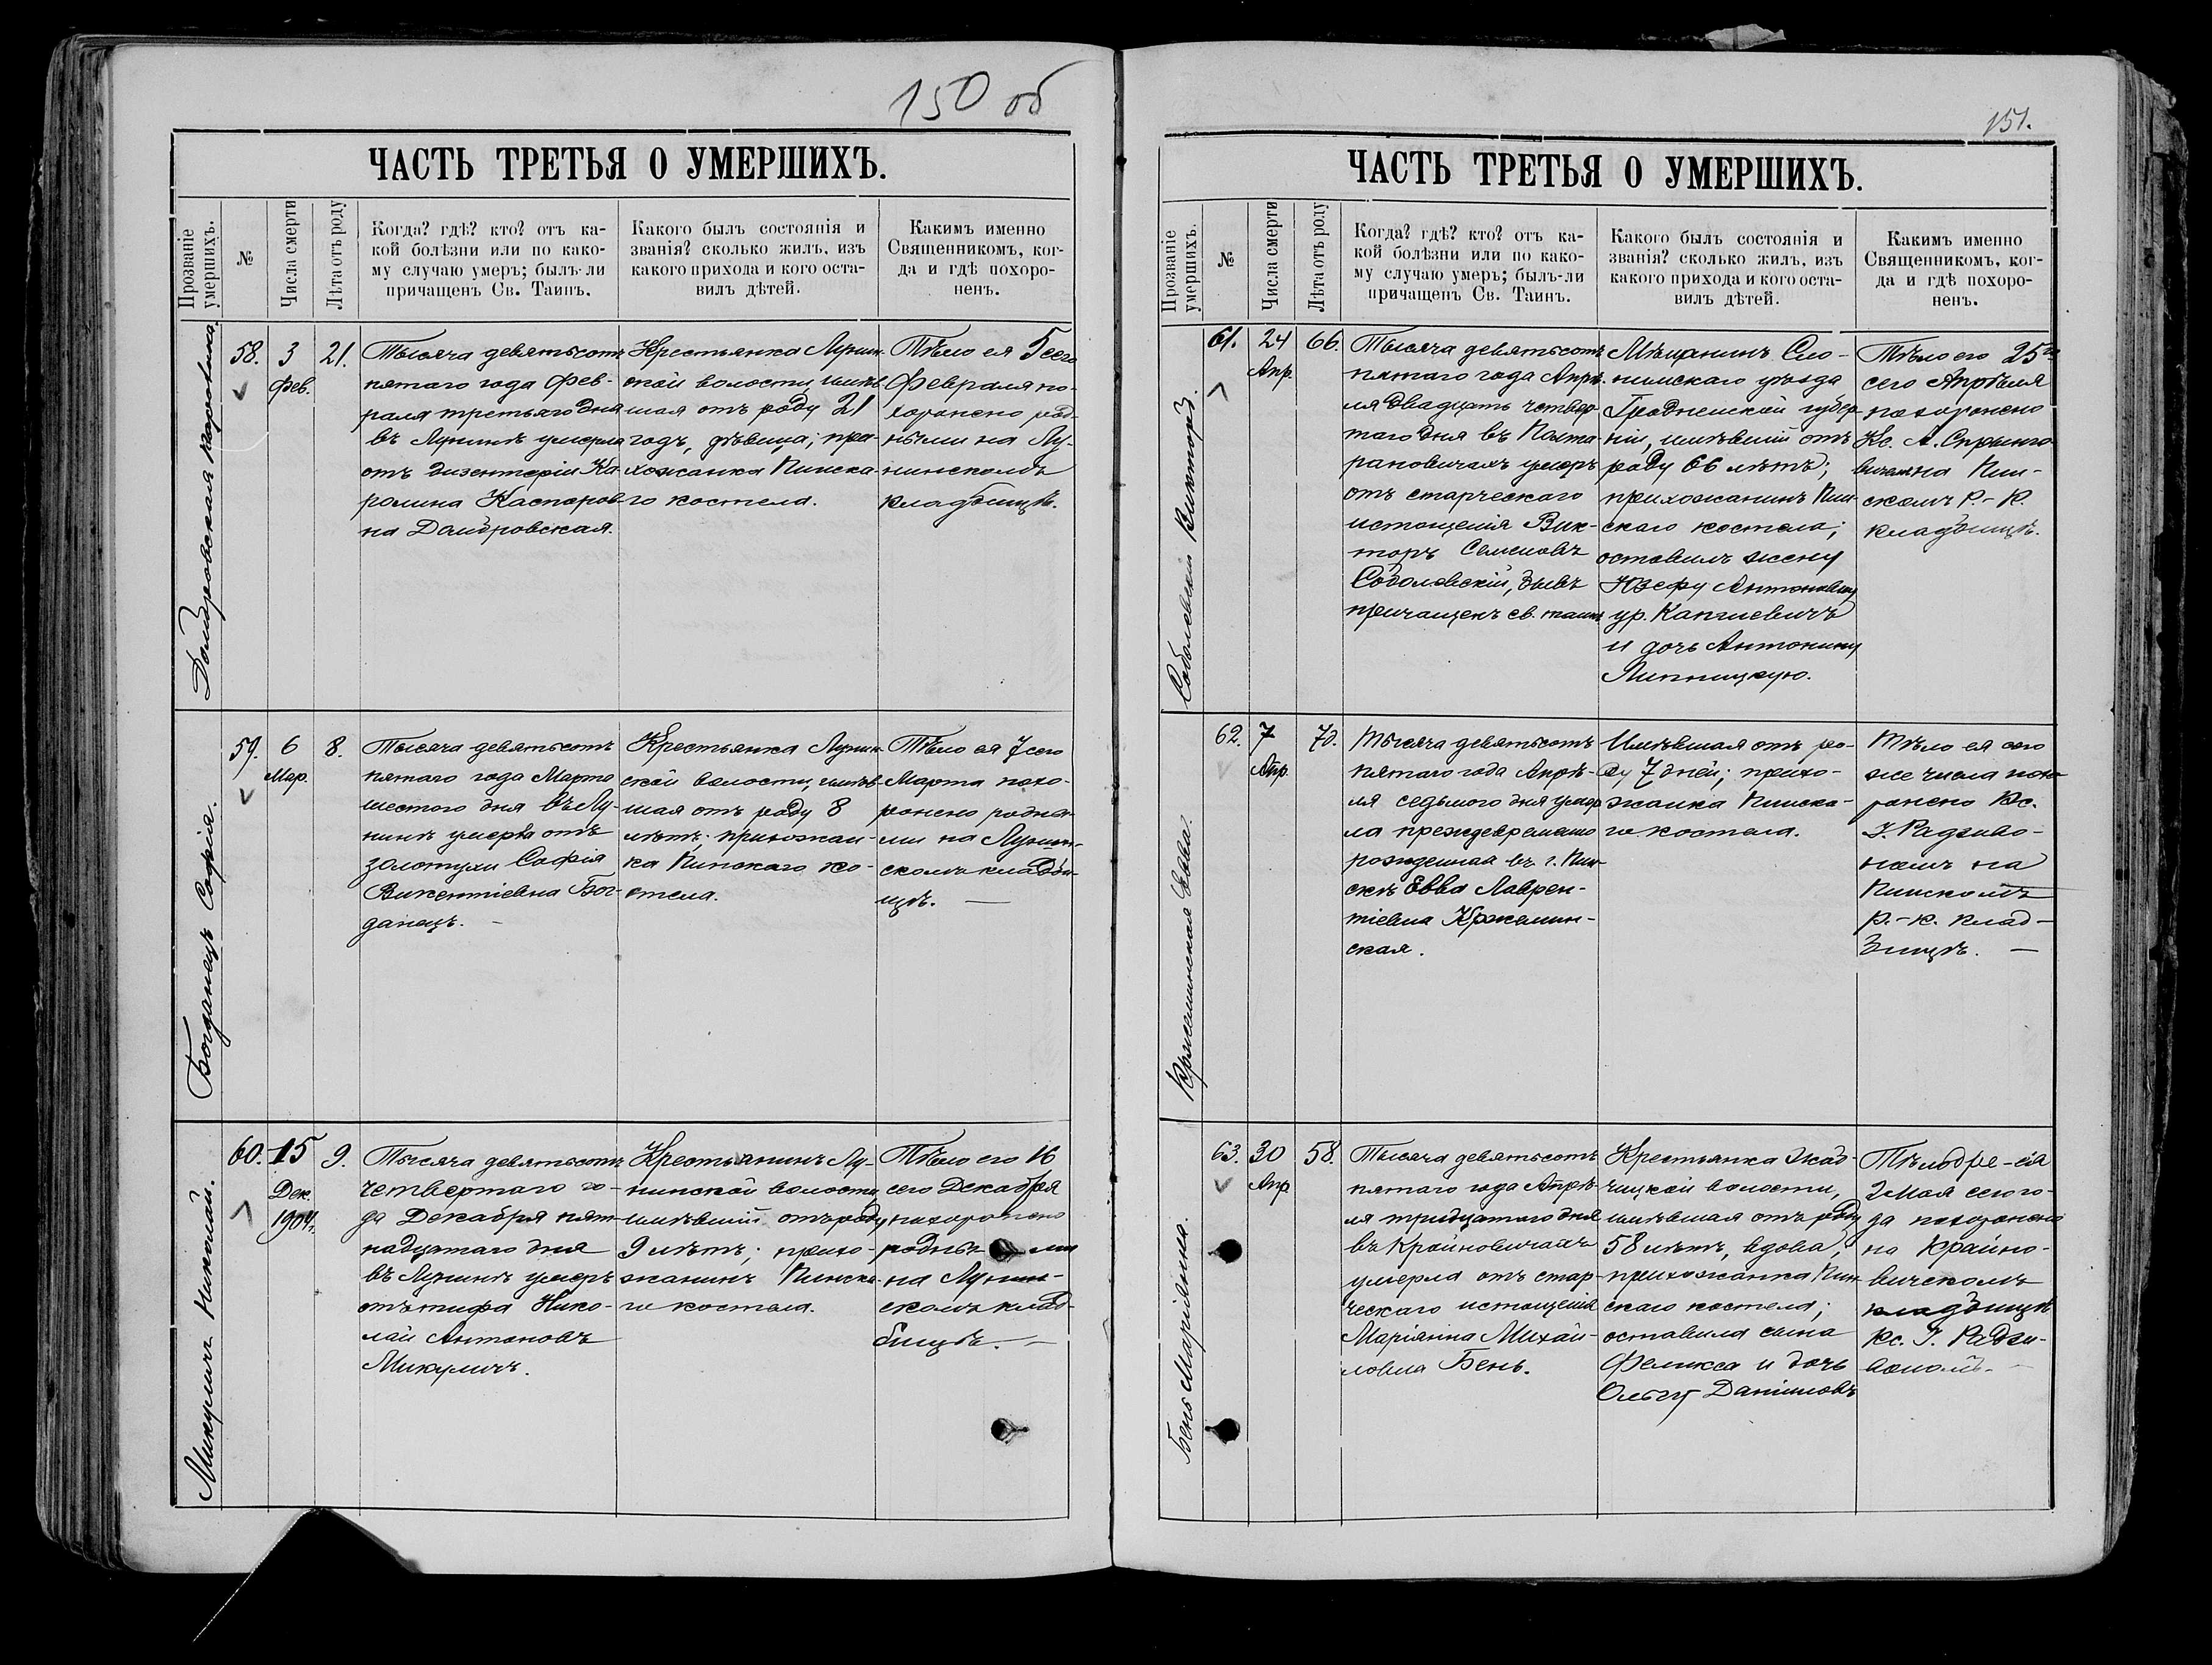 150 об
ЧАСТЬ ТРЕТЬЯ О УМЕРШИХЪ.
Прозваніе умершихъ.
№
Числа смерти
Лѣта отъ роду
Когда? гдѣ? кто? отъ ка-
кой болѣзни или по како-
му случаю умеръ; былъ-ли
причащенъ Св. Таинъ.
Какого былъ состоянія и
званія? сколько жилъ, изъ
какого прихода и кого оста-
вилъ дѣтей.
Какимъ именно
Священникомъ, ког-
да и гдѣ похоро-
ненъ.
Домбровская Каролина.
58.
3
Фев.
21.
Тысяча девятьсотъ
пятаго года Фев-
раля третьяго дня
въ Лунинѣ умерла
отъ дизентеріи Ка-
ролина Каспаров-
на Домбровская.
Крестьянка Лунин-
ской волости, имѣв
шая отъ роду 21
годъ, дѣвица; при-
хожанка Пинска-
го костела.
Тѣло ея 5 сего
Февраля по-
хоронено род-
ными на Лу-
нинскомъ
кладбищѣ.
Богданецъ Софія.
59.
6
Мар.
8.
Тысяча девятьсотъ
пятаго года Марта
шестого дня въ Лу-
нинѣ умерла отъ
золотухи Софія
Викентіевна Бог-
данецъ. -
Крестьянка Лунин
ской волости, имѣв-
шая отъ роду 8
лѣтъ; прихожан-
ка Пинскаго ко-
стела.
Тѣло ея 7 сего
Марта похо-
ронено родны-
ми на Лунин-
скомъ кладби-
щѣ. —
Микуличъ Николай.
60.
15
Дек.
1904 г.
9.
Тысяча девятьсотъ
четвертаго го-
да Декабря пят-
надцатаго дня
въ Лунинѣ умеръ
отъ тифа Нико-
лай Антоновъ
Микуличъ.
Крестьянинъ Лу-
нинской волости,
имѣвшій отъ роду
9 лѣтъ; прихо-
жанинъ Пинска-
го костела.
Тѣло его 16
сего Декабря
похоронено
родны ми
на Лунин-
скомъ клад-
бищѣ. —
151.
ЧАСТЬ ТРЕТЬЯ О УМЕРШИХЪ.
Прозваніе умершихъ.
№
Числа смерти
Лѣта отъ роду
Когда? гдѣ? кто? отъ ка-
кой болѣзни или по како-
му случаю умеръ; былъ-ли
причащенъ Св. Таинъ.
Какого былъ состоянія и
званія? сколько жилъ, изъ
какого прихода и кого оста-
вилъ дѣтей.
Какимъ именно
Священникомъ, ког-
да и гдѣ похоро-
ненъ.
Соболевскій Викторъ.
61.
24
Апр.
66.
Тысяча девятьсотъ
пятаго года Апрѣ-
ля двадцать четвер-
таго дня въ Полта
рановичахъ умеръ
отъ старческаго
истощенія Вик-
торъ Семеновъ
Соболевскій, бывъ
причащенъ св. таинъ
Мѣщанинъ Сло-
нимскаго уѣзда
Гродненской губер-
ніи, имѣвшій отъ
роду 66 лѣтъ;
прихожанинъ Пин-
скаго костела;
оставилъ жену
Юзефу Антоновну
ур. Капгиевичъ
и дочь Антонину
Липницкую.
Тѣло его 25го
сего Апрѣля
похоронено
Кс. А. Спрынго
вичемъ на Пин-
скомъ Р.-К.
кладбищѣ.
Кржеминская Евва.
62.
7
Апр.
7д.
Тысяча девятьсотъ
пятаго года Апрѣ-
ля седьмого дня умер
ла преждевременно
рожденная въ г. Пин
скѣ Евва Лаврен-
тіевна Кржемин-
ская.
Имѣвшая отъ ро-
ду 7 дней; прихо-
жанка Пинска-
го костела.
Тѣло ея сего
же числа похо
ронено Кс.
І. Радзиво-
номъ на
Пинскомъ
Р.-К. клад-
бищѣ. —
Бень Маріанна.
63.
30
Апр
58.
Тысяча девятьсотъ
пятаго года Апрѣ-
ля тридцатаго дня
въ Крайновичахъ
умерла отъ стар-
ческаго истощенія
Маріанна Михай-
ловна Бень.
Крестьянка Жаб-
чицкой волости,
имѣвшая отъ роду
58 лѣтъ, вдова;
прихожанка Пин
скаго костела;
оставила сына
Феликса и дочь
Ольгу Даниловъ
2 Мая сего го-
да похоронено
на Крайно-
вичскомъ
кладбищѣ
Кс. І. Радзи-
вономъ. —